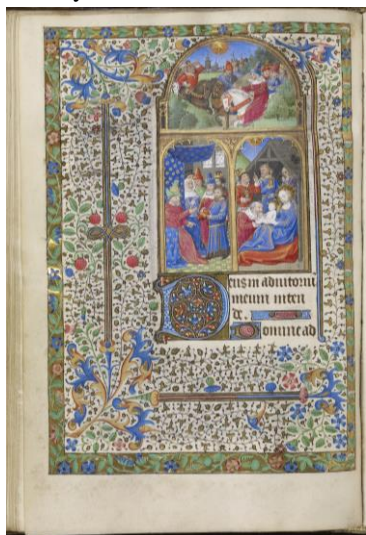 Deus in adiutoriu
meum inten
de.
Domine ad